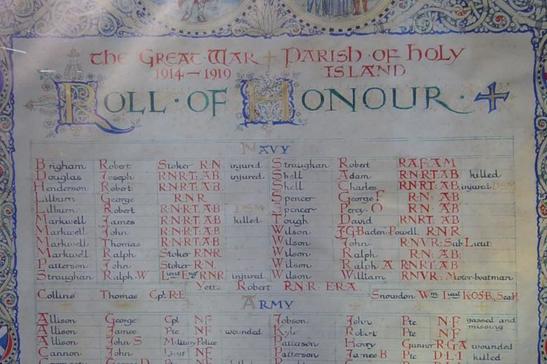 The Great War + Parish of Holy
1914 — 1919 Island
Roll · of Honour ·
Navy
Brigham Robert Stoker R.N. injured Straughan Robert R.A.F.A.M.
Douglas Joseph R.N.R.T. A.B. injured Shell Adam R.N.R.T. A.B. killed
Henderson Robert R.N.R.T. A.B. Shell Charles R.N.R.T. A.B. injured
Lilburn George R.N.R. Spencer George F. R.N. A.B.
Lilburn Robert R.N.R.T. A.B. Spencer Percy O. R.N. A.B.
Markwell James R.N.R.T. A.B. killed Tough David R.N.R.T. A.B.
Markwell John R.N.R.T. A.B. Wilson J.G. Baden Powell R.N.R.
Markwell Thomas R.N.R.T. A.B. Wilson John R.N.V.R. Sub Lieut
Markwell Ralph Stoker R.N.R. Wilson Ralph R.N. A.B.
Patterson John Stoker R.N. Wilson Ralph A R.N.R.T. A.B.
Straughan Ralph W R.N.R. injured Wilson William R.N.V.R. Motor-boatman
Yett Robert R.N.R. E.R.A.
Collins Thomas Cpl. R.E. Snowdon Wm. K.O.S.B.
Army
Allison George Cpl N.F. Jobson John Pte N.F. gassed and missing
Allison James Pte N.F. wounded Kyle Robert Pte N.F.
Allison John S Military Police Patterson Henry Gunner R.G.A. wounded
Cannon John N.F. Patterson James B Pte D.L.I. killed